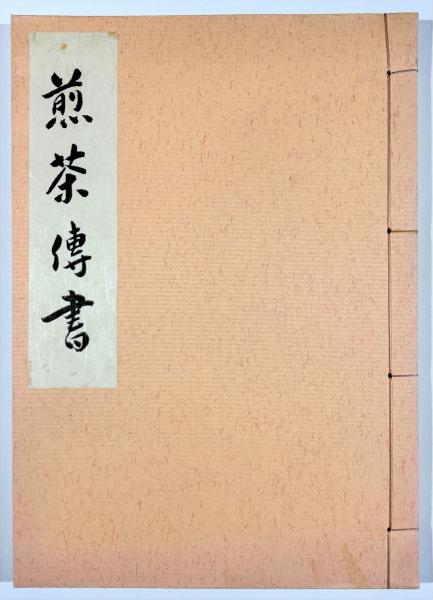 煎茶傳書